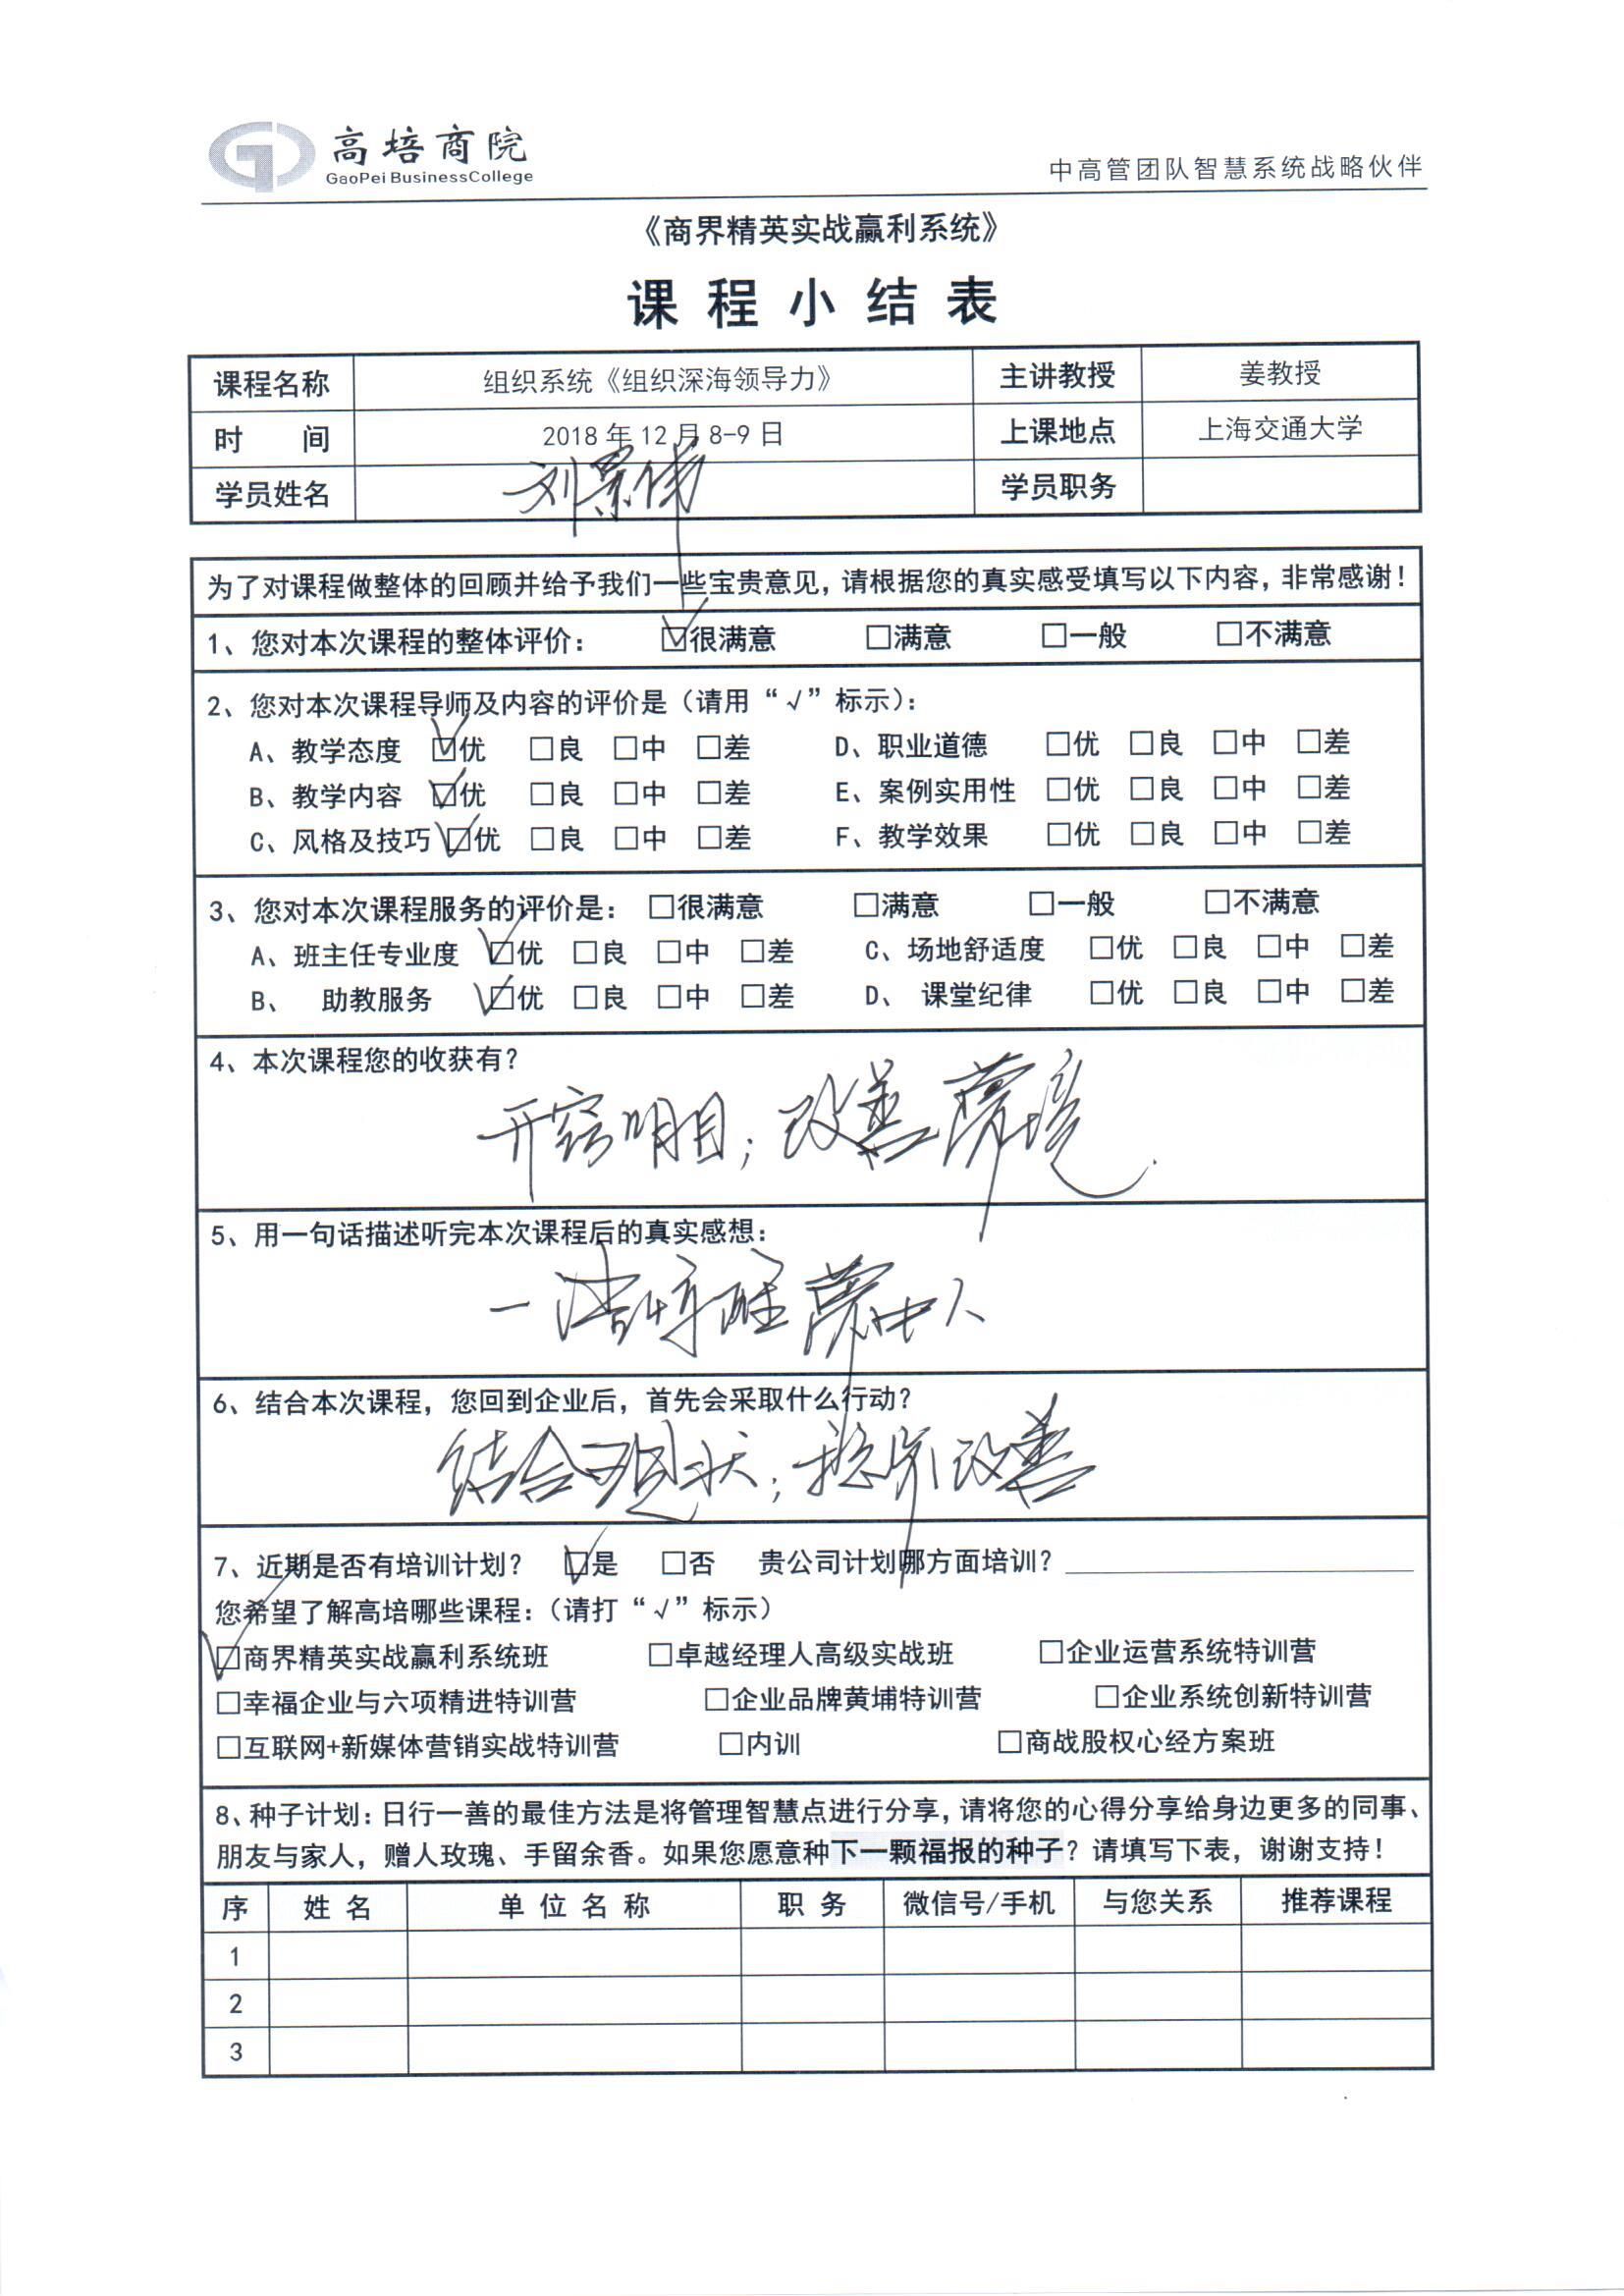 高培商院
GaoPei BusinessCollege
中高管团队智慧系统战略伙伴
《商界精英实战赢利系统》
课程小结表
课程名称 组织系统《组织深海领导力》 主讲教授 姜教授
时 间 2018年12月8-9日 上课地点 上海交通大学
学员姓名 刘景伟 学员职务
为了对课程做整体的回顾并给予我们一些宝贵意见，请根据您的真实感受填写以下内容，非常感谢！
1、您对本次课程的整体评价： ☑很满意 □满意 □一般 □不满意
2、您对本次课程导师及内容的评价是（请用“√”标示）：
A、教学态度 ☑优 □良 □中 □差 D、职业道德 □优 □良 □中 □差
B、教学内容 ☑优 □良 □中 □差 E、案例实用性 □优 □良 □中 □差
C、风格及技巧 ☑优 □良 □中 □差 F、教学效果 □优 □良 □中 □差
3、您对本次课程服务的评价是： □很满意 □满意 □一般 □不满意
A、班主任专业度 ☑优 □良 □中 □差 C、场地舒适度 □优 □良 □中 □差
B、 助教服务 ☑优 □良 □中 □差 D、 课堂纪律 □优 □良 □中 □差
4、本次课程您的收获有？
开窍明目；改善梦境.
5、用一句话描述听完本次课程后的真实感想：
一语惊醒梦中人
6、结合本次课程，您回到企业后，首先会采取什么行动？
结合现状；稳步改善
7、近期是否有培训计划？ ☑是 □否 贵公司计划哪方面培训？
您希望了解高培哪些课程：（请打“√”标示）
☑商界精英实战赢利系统班 □卓越经理人高级实战班 □企业运营系统特训营
□幸福企业与六项精进特训营 □企业品牌黄埔特训营 □企业系统创新特训营
□互联网+新媒体营销实战特训营 □内训 □商战股权心经方案班
8、种子计划：日行一善的最佳方法是将管理智慧点进行分享，请将您的心得分享给身边更多的同事、
朋友与家人，赠人玫瑰、手留余香。如果您愿意种下一颗福报的种子？请填写下表，谢谢支持！
序 姓 名 单 位 名 称 职 务 微信号/手机 与您关系 推荐课程
1
2
3